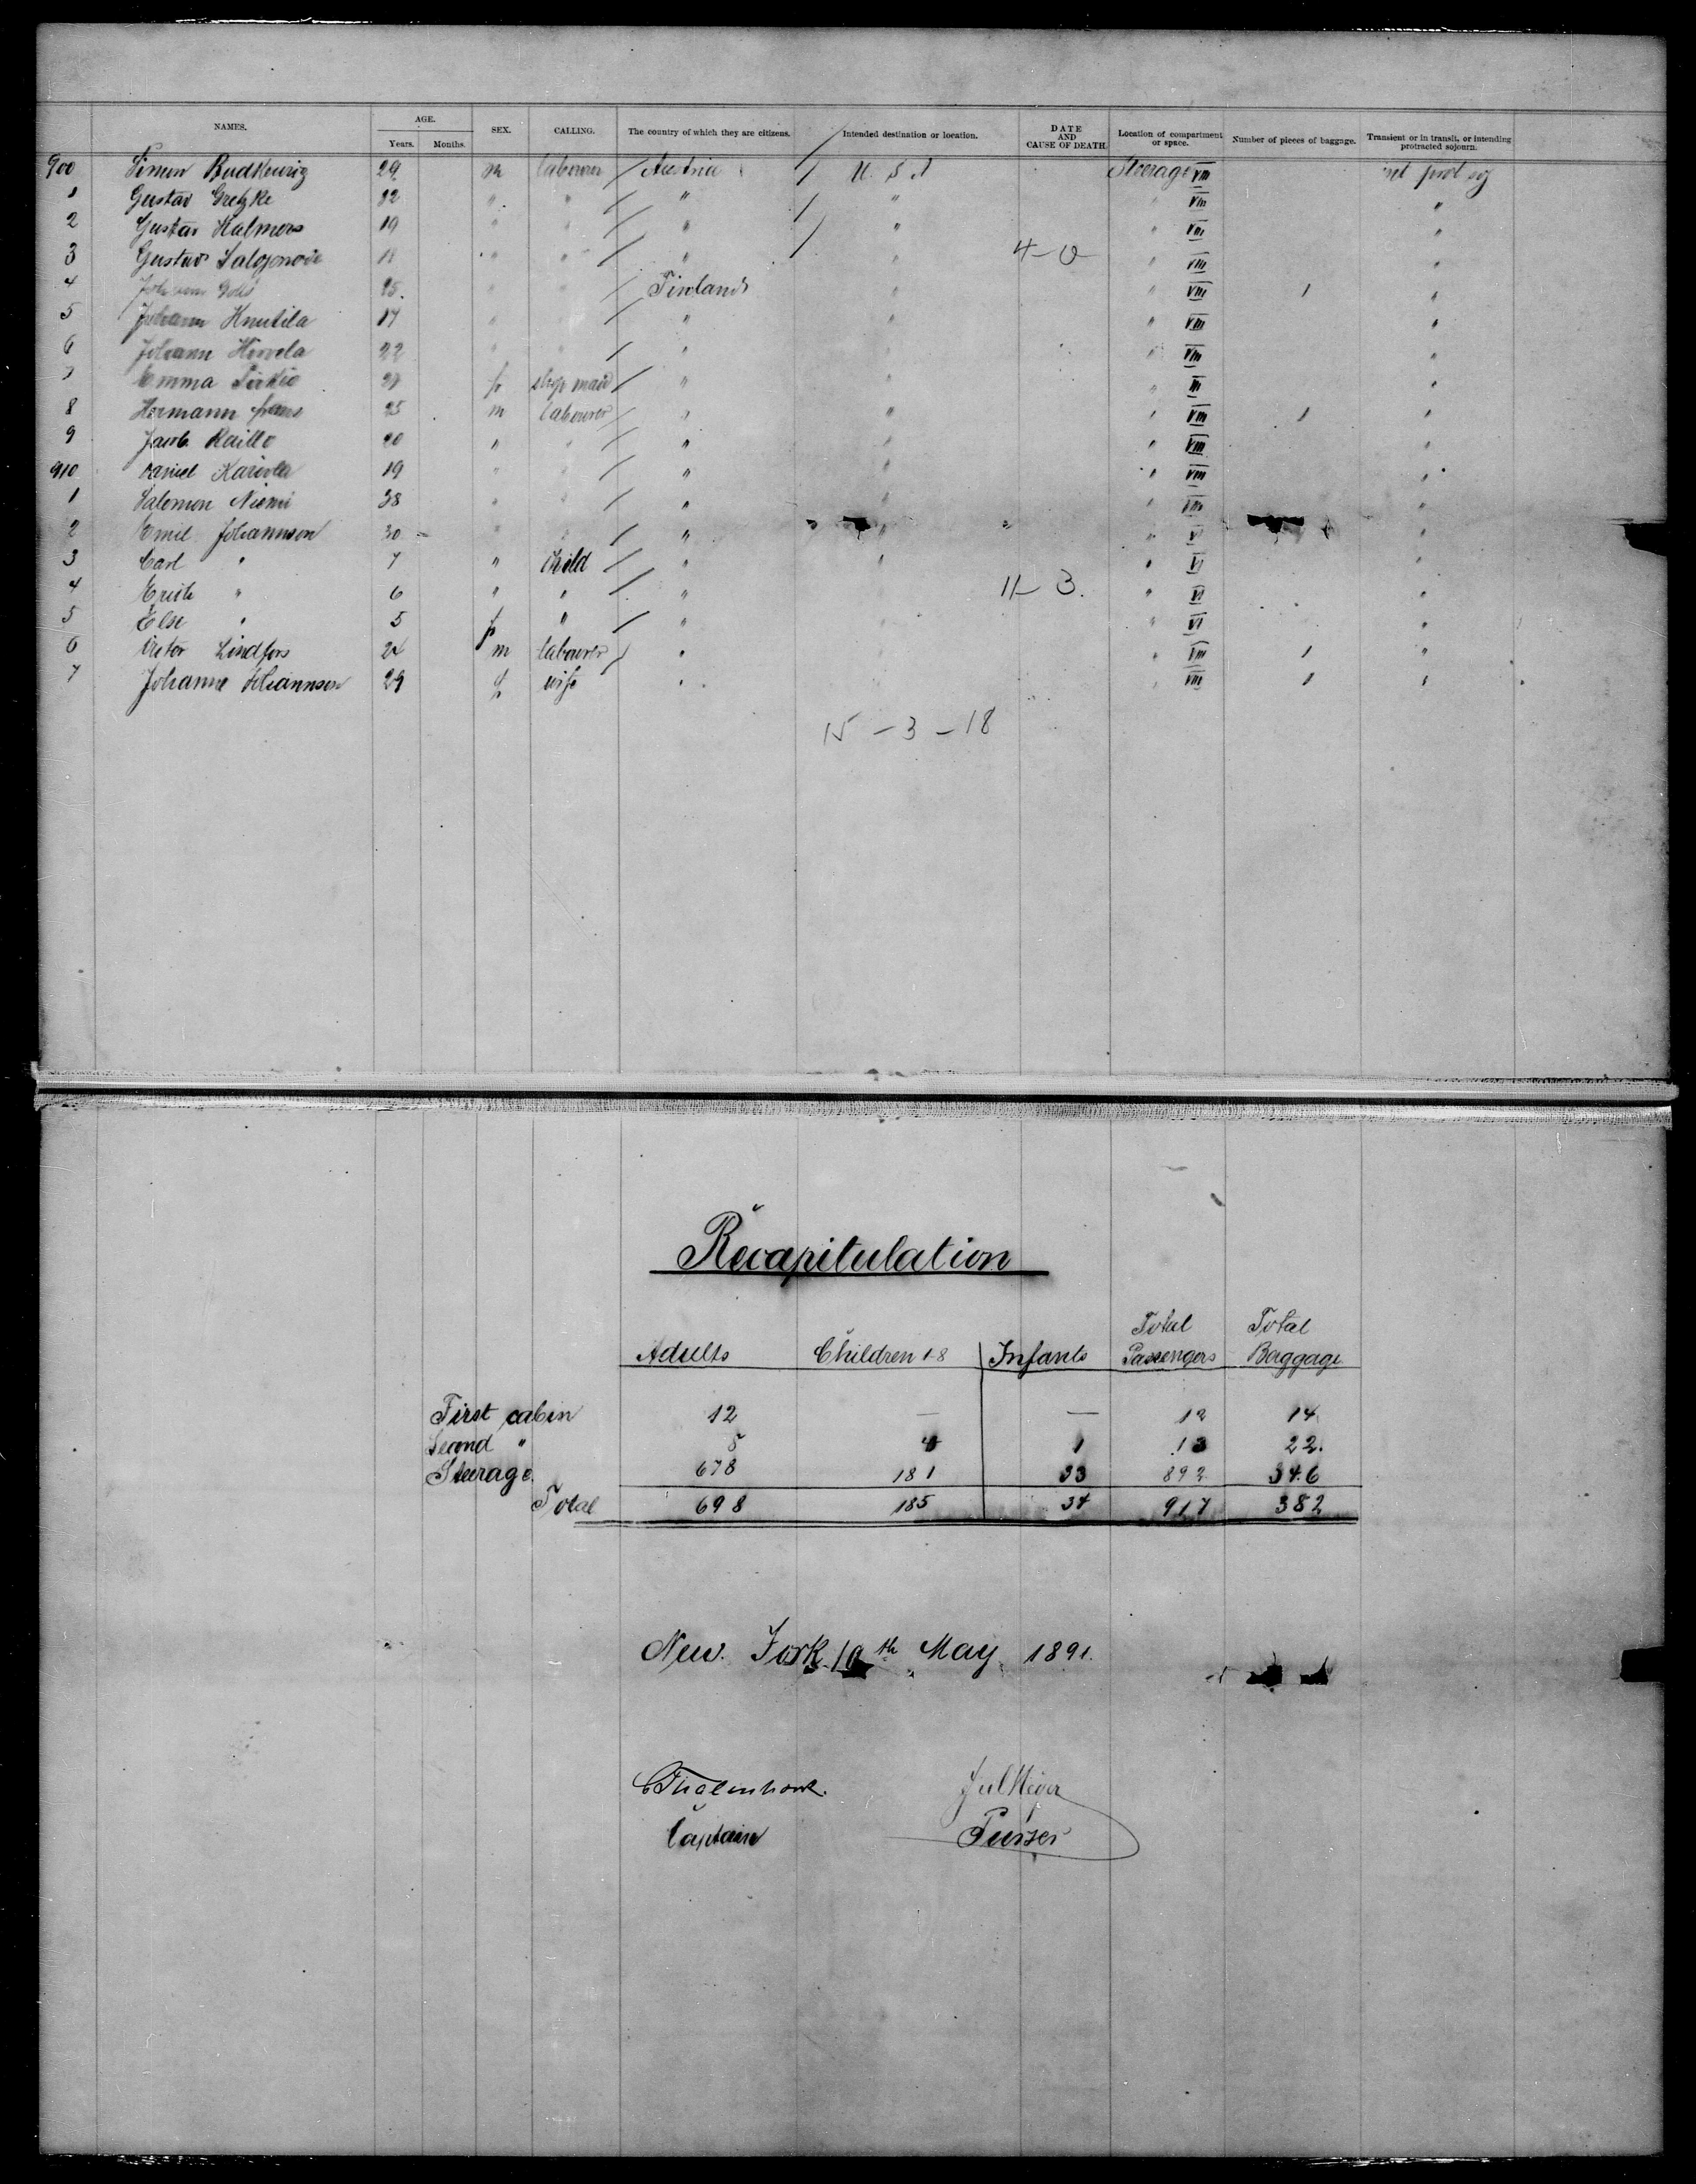 NAMES. AGE. Years. Months. SEX. CALLING. The country of which they are citizens. Intended destination or location. DATE AND CAUSE OF DEATH. Location of compartment or space. Number of pieces of baggage. Transient or in transit, or intending protracted sojourn.
900 Simon 29 m labourer / Austria / U. S. A Steerage VIII int prot soj
1 Gustav Gretzke 32 " " / " / " " VIII "
2 Gustav Kalmers 19 " " / " / " " VIII "
3 Gustav " " / " " 4-0 " VIII "
4 25 " " / Finland " " VIII 1 "
5 Johann Knutila 17 " / " " " VIII "
6 Johann Hirvela 22 " " / " " " VIII "
7 Emma f / " " " III "
8 Hermann 25 m labourer / " " " VIII 1 "
9 Jacob Raitto " " / " " " VIII "
910 Daniel Karivla 19 " " / " " " VIII "
1 Salomon Niemi 38 " " / " " " VIII "
2 Emil Johannson 30 " " / " " " VI "
3 Carl " 7 " child / " " " VI "
4 " 6 " " / " 11-3. " VI "
5 Else " 5 f " / " " VI "
6 Victor Lindfors 24 m labourer / " " VIII 1 "
7 Johanne Johannson 29 f wife " " VIII 1 "
15-3-18
Recapitulation
Adults Children 1-8 Infants Total Passengers Total Baggage
First cabin 12 — — 12 14
Second " 8 4 1 13 22.
Steerage. 678 181 33 892 346
Total 698 185 34 917 382
New York 10th May 1891.
Captain Purser